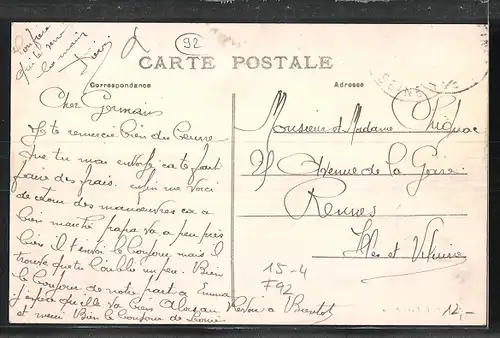 92
CARTE POSTALE
Correspondance
Adresse
Cher Germain
Je te remercie bien du beurre
que tu mai envoyé ca te fait
faire des frais. enfin me voici
de retour des manoeuvres ca a
bien marché papa va a peu près
bien il t'envoi le bonjour mais il
trouve que tu loublie un peu. Bien
le bonjour de notre part a Emma
J'espère qu'elle va bien Revoir a Bientot
et merci Bien le bonjour de
Monsieur et Madame
25 Avenue de la Gare
Rennes
Ille et Vilaine
15-4
F92
12,-